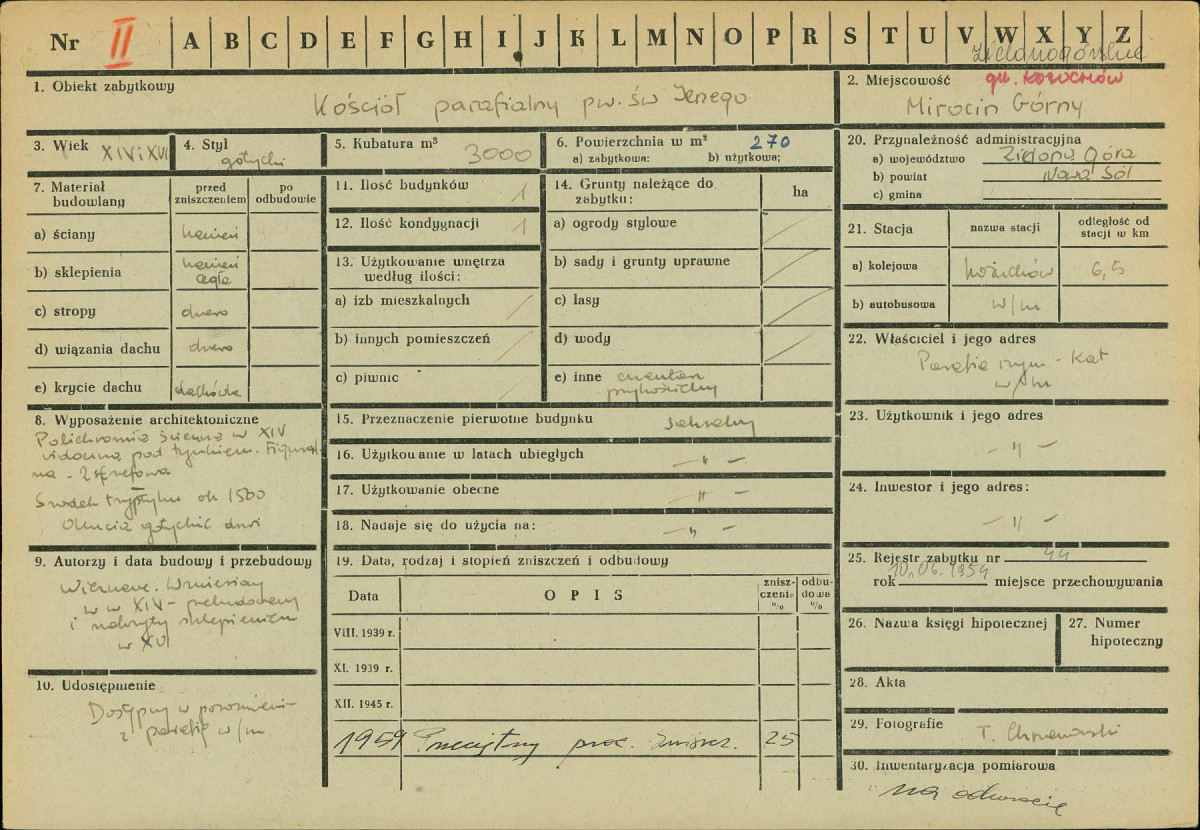 Nr II A B C D E F G H I J K L M N O P R S T U V W X Y Z
Zielonogórskie
1. Obiekt zabytkowy
Kościół parafialny pw. św Jerzego
2. Miejscowość gm. KOŻUCHÓW
Mirocin Górny
3. Wiek XIV i XVI
4. Styl
gotycki
5. Kubatura m³
3000
6. Powierzchnia w m² 270
a) zabytkowa: b) użytkowa;
20. Przynależność administracyjna
a) województwo Zielona Góra
b) powiat Nowa Sól
c) gmina
7. Materiał budowlany
przed zniszczeniem
po odbudowie
a) ściany kamień
b) sklepienia kamień
cegła
c) stropy drewo
d) wiązania dachu drewo
e) krycie dachu dachówka
8. Wyposażenie architektoniczne
Polichromia ścienna w XIV
widoczna pod tynkiem. Figural-
na - 2 strefowa
Środek tryptyku ok 1500
Okucia gotyckie drzwi
9. Autorzy i data budowy i przebudowy
Wzniesiony
w w XIV - przebudowany
i nakryty sklepieniem
w XVI
10. Udostępnienie
Dostępny w porozumieniu
z parafią w/m
11. Ilość budynków 1
12. Ilość kondygnacji 1
13. Użytkowanie wnętrza
według ilości:
a) izb mieszkalnych /
b) innych pomieszczeń /
c) piwnic /
14. Grunty należące do
zabytku:
ha
a) ogrody stylowe /
b) sady i grunty uprawne /
c) lasy /
d) wody /
e) inne cmentarz
przykościelny
15. Przeznaczenie pierwotne budynku sakralny
16. Użytkowanie w latach ubiegłych - „ -
17. Użytkowanie obecne - „ -
18. Nadaje się do użycia na: - „ -
19. Data, rodzaj i stopień zniszczeń i odbudowy
Data
O P I S
znisz-
czenia
%
odbu-
dowa
%
VIII. 1939 r.
XI. 1939 r.
XII. 1945 r.
1959 Przeciętny proc. zniszcz. 25
21. Stacja
nazwa stacji
odległość od
stacji w km
a) kolejowa Kożuchów 6,5
b) autobusowa w/m
22. Właściciel i jego adres
Parafia rzym - kat
w/m
23. Użytkownik i jego adres
- „ -
24. Inwestor i jego adres:
- „ -
25. Rejestr zabytku nr 44
rok 10.06.1954 miejsce przechowywania
26. Nazwa księgi hipotecznej
27. Numer
hipoteczny
28. Akta
29. Fotografie T. Chrzanowski
30. Inwentaryzacja pomiarowa
na odwrocie